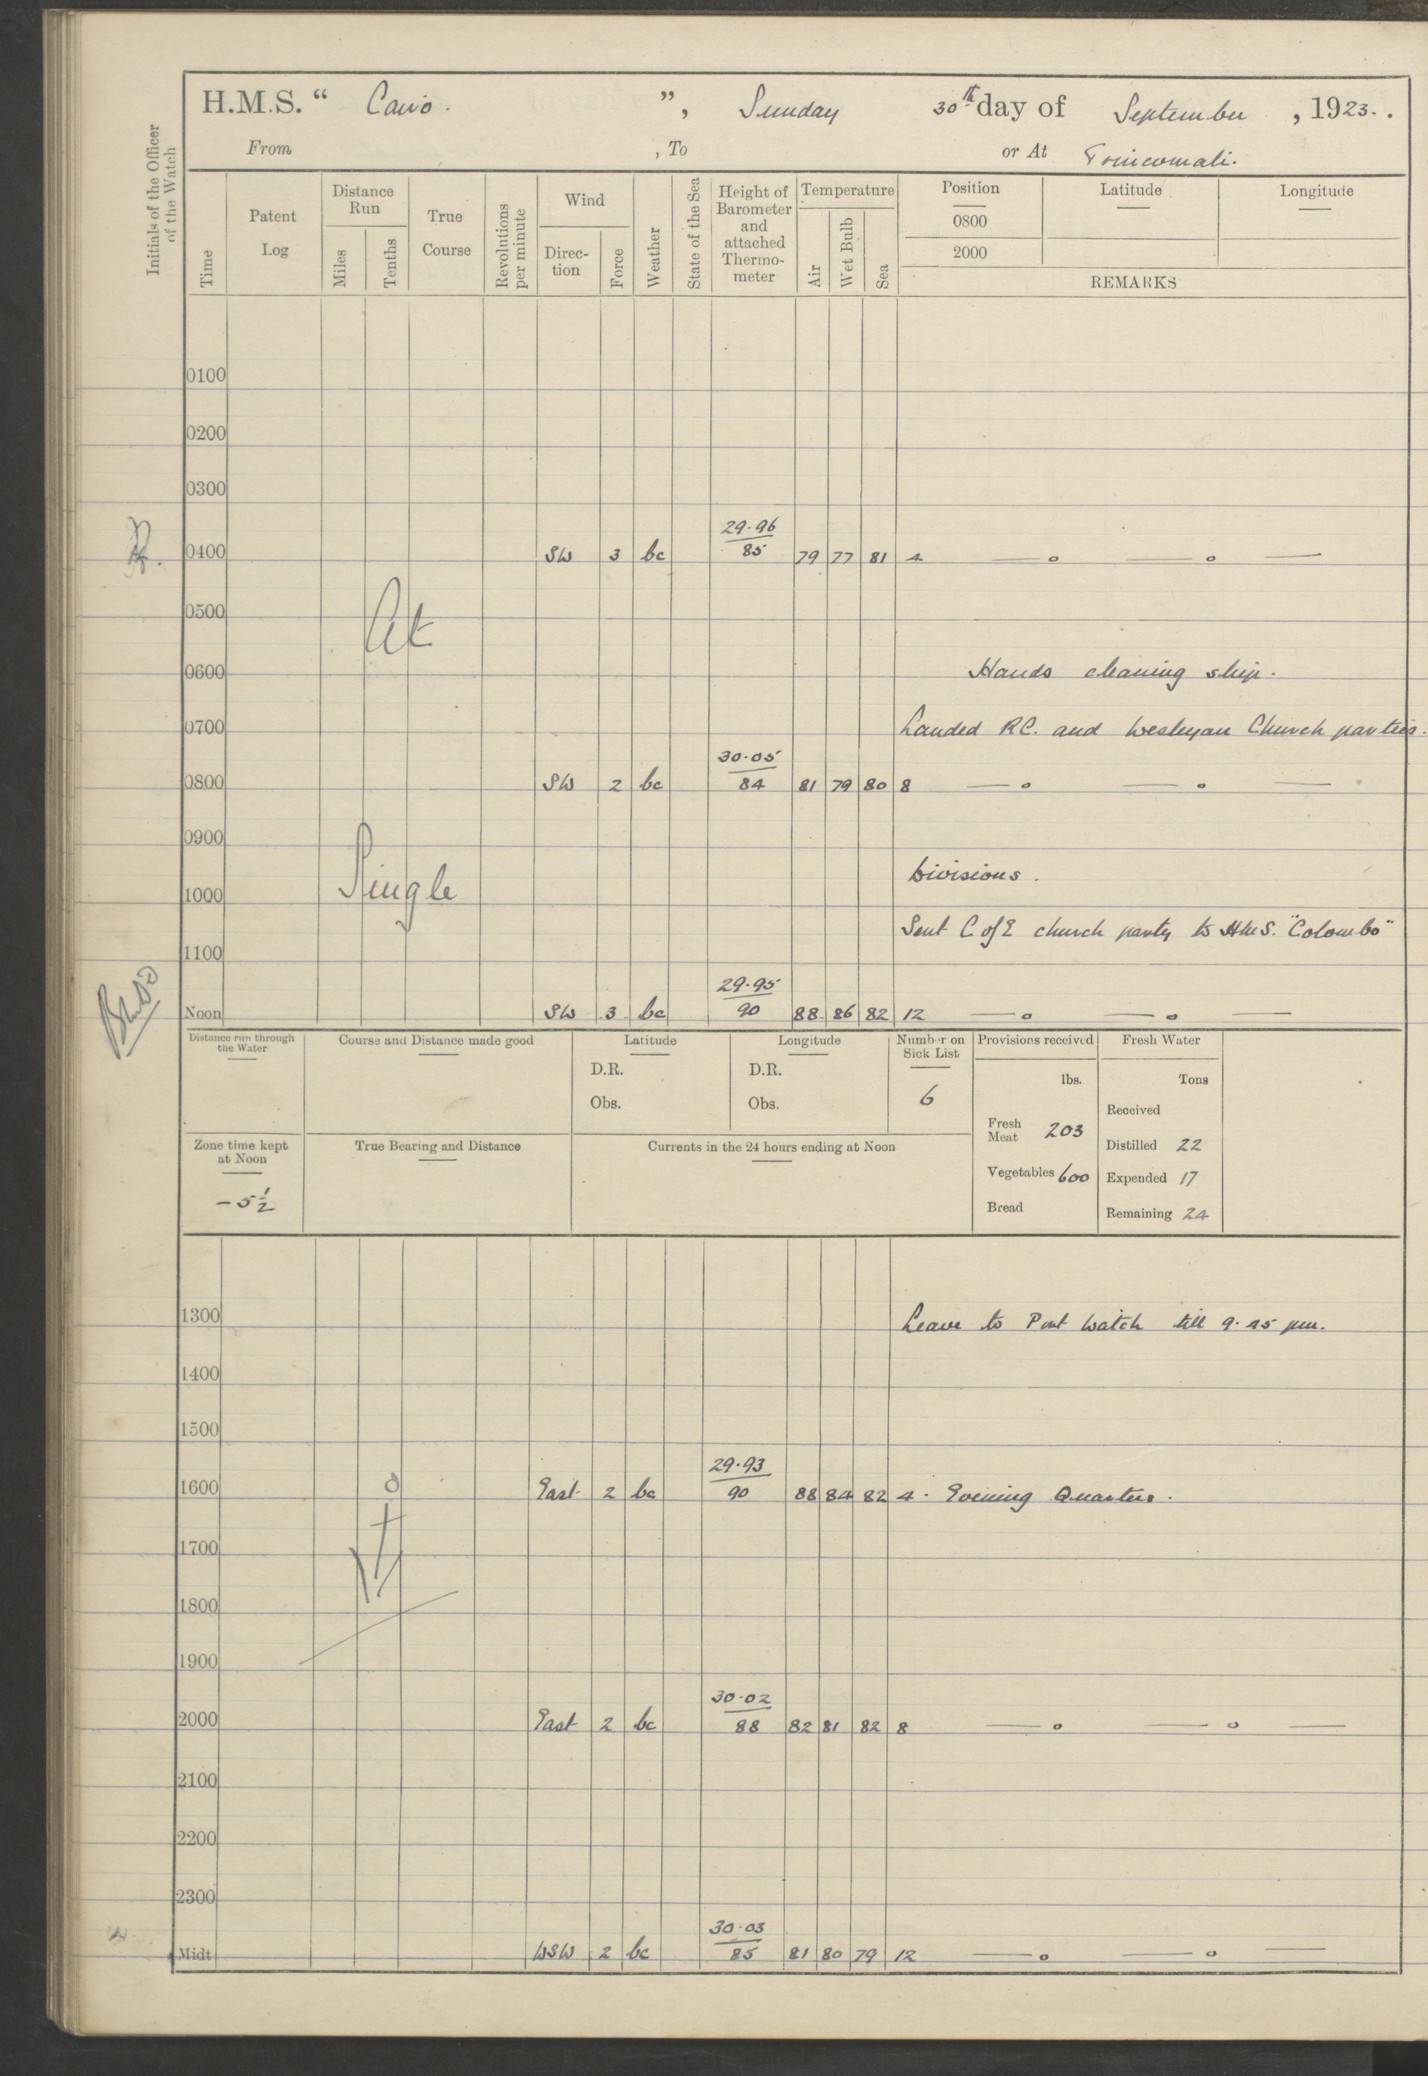 H.M.S. “ Cairo. ”, Sunday 30th day of September, 1923.
From , To or At Trincomali.
Initials of the Officer of the Watch
Time
Patent Log
Distance Run
Miles
Tenths
True Course
Revolutions per minute
Wind
Direction
Force
Weather
State of the Sea
Height of Barometer and attached Thermometer
Temperature
Air
Wet Bulb
Sea
Position Latitude Longitude
0800
2000
REMARKS
0100
0200
0300
29.96
0400 SW 3 bc 85 79 77 81 4 — o — o —
0500
At
0600 Hands cleaning ship.
0700 Landed RC. and Wesleyan Church parties.
30.05
0800 SW 2 bc 84 81 79 80 8 — o — o —
0900
Divisions.
1000
Single
Sent C of E church party to HMS. "Colombo"
1100
29.95
Noon SW 3 bc 90 88 86 82 12 — o — o —
Distance run through the Water
Course and Distance made good
Latitude
D.R.
Obs.
Longitude
D.R.
Obs.
Number on Sick List
6
Provisions received
lbs.
Fresh Meat 203
Vegetables 600
Bread
Fresh Water
Tons
Received
Distilled 22
Expended 17
Remaining 24
Zone time kept at Noon
– 5½
True Bearing and Distance
Currents in the 24 hours ending at Noon
1300 Leave to Port Watch till 9.45 pm.
1400
1500
29.93
1600 East 2 bc 90 88 84 82 4. Evening Quarters.
1700
1800
1900
30.02
2000 East 2 bc 88 82 81 82 8 — o — o —
2100
2200
2300
30.03
Midt WSW 2 bc 85 81 80 79 12 — o — o —